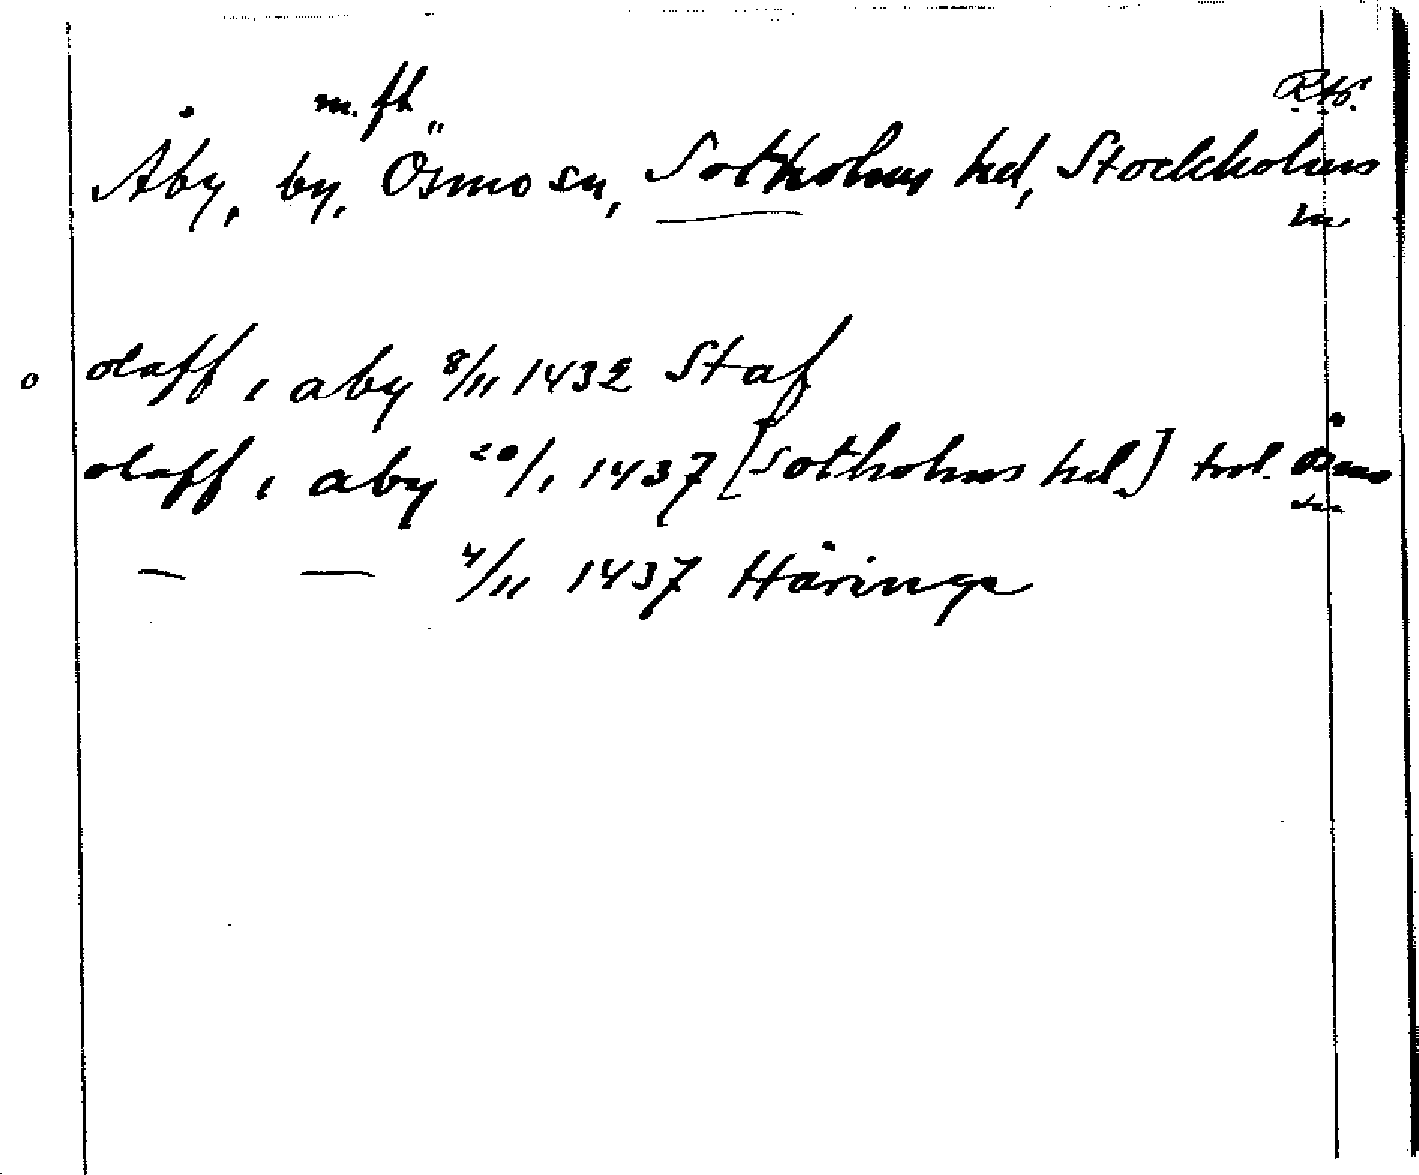 m. fl.
Åby, by, Ösmo sn, Sotholms hd, Stockholms
ln
olaff i aby 8/11 1432 Staf
olaff i aby 20/1 1437 [Sotholms hd.] trol. Ösmo
sn
— — 4/11 1437 Häringe